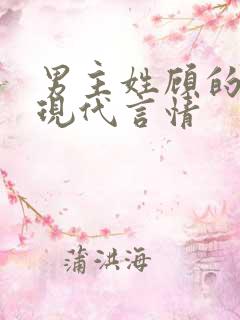 男主姓顾的
现代言情
蒲洪海